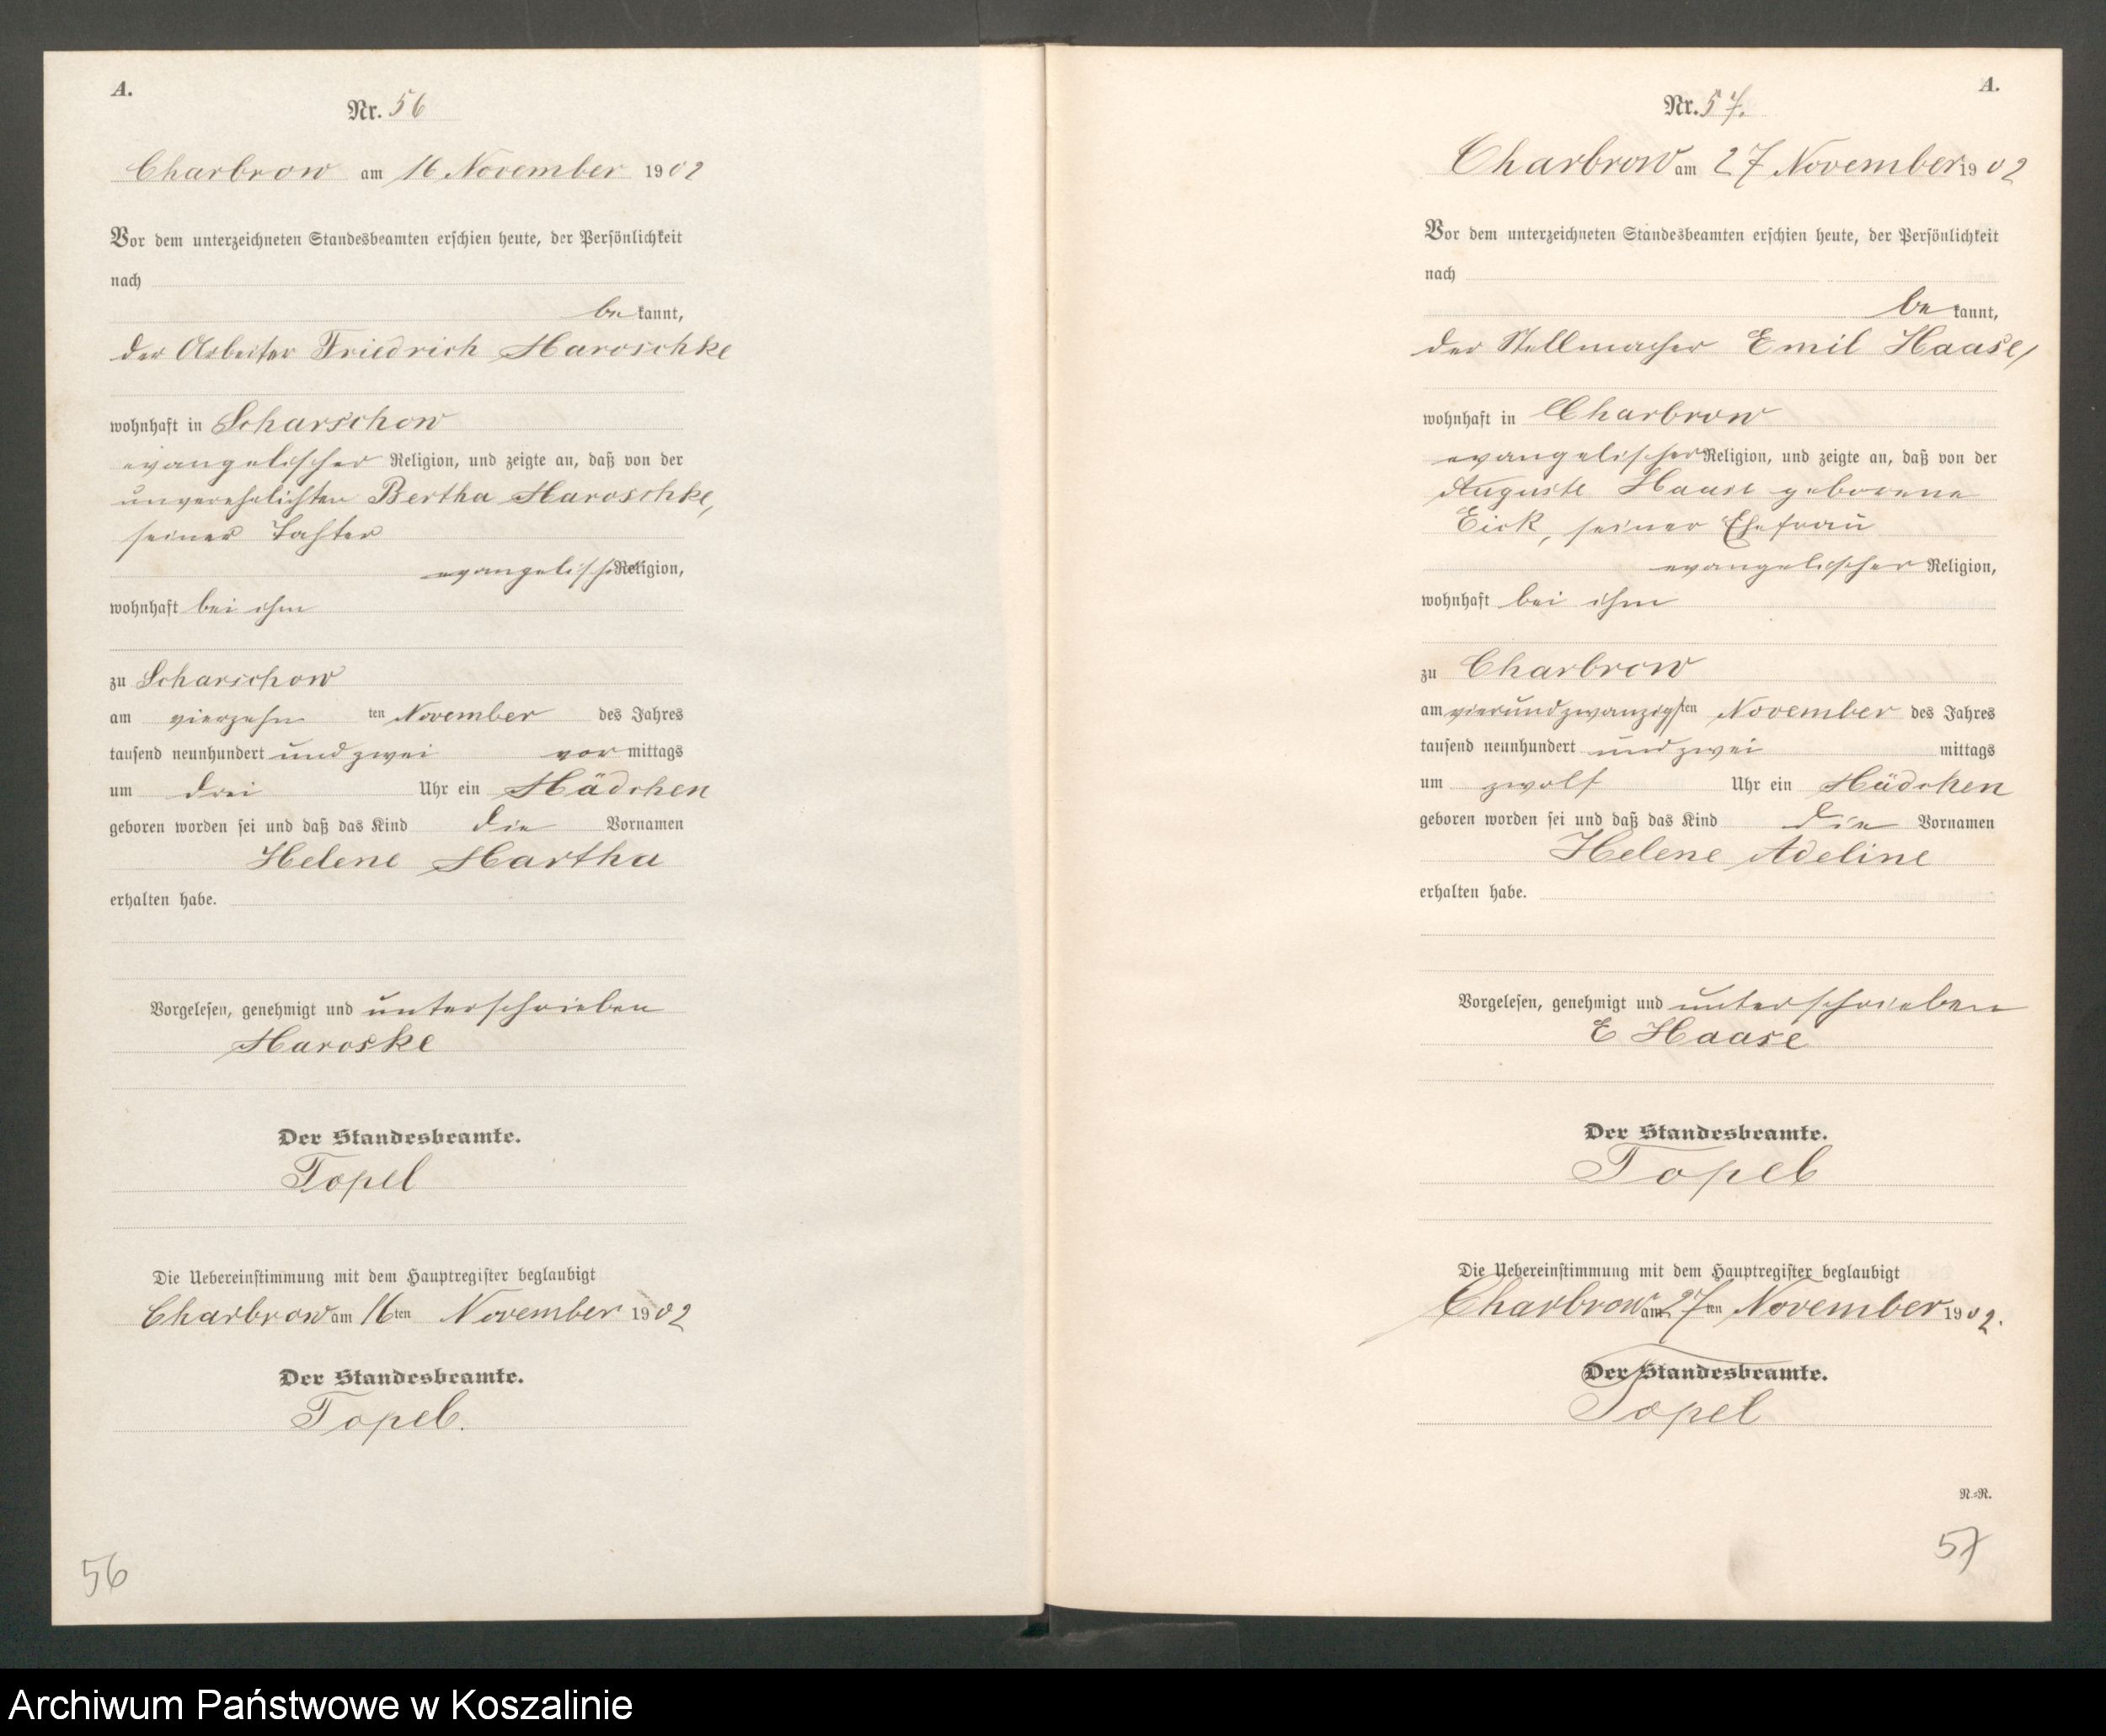 A.
Nr. 56
Charbrow am 16 November 1902
Vor dem unterzeichneten Standesbeamten erschien heute, der Persönlichkeit
nach
be kannt,
der Arbeiter Friedrich Maroschke
wohnhaft in Scharschow
evangelischer Religion, und zeigte an, daß von der
unverehelichten Bertha Maroschke,
seiner Tochter
evangelischer Religion,
wohnhaft bei ihm
zu Scharschow
am vierzehn ten November des Jahres
tausend neunhundert und zwei vor mittags
um drei Uhr ein Mädchen
geboren worden sei und daß das Kind die Vornamen
Helene Martha
erhalten habe.
Vorgelesen, genehmigt und unterschrieben
Maroske
Der Standesbeamte.
Topel
Die Uebereinstimmung mit dem Hauptregister beglaubigt
Charbrow am 16ten November 1902
Der Standesbeamte.
Topel.
56
A.
Nr. 57.
Charbrow am 27 November 1902
Vor dem unterzeichneten Standesbeamten erschien heute, der Persönlichkeit
nach
be kannt,
der Stellmacher Emil Haase,
wohnhaft in Charbrow
evangelischer Religion, und zeigte an, daß von der
Auguste Haase geborene
Eick, seiner Ehefrau
evangelischer Religion,
wohnhaft bei ihm
zu Charbrow
am vierundzwanzigsten November des Jahres
tausend neunhundert und zwei mittags
um zwölf Uhr ein Mädchen
geboren worden sei und daß das Kind die Vornamen
Helene Adeline
erhalten habe.
Vorgelesen, genehmigt und unterschrieben
E Haase
Der Standesbeamte.
Topel
Die Uebereinstimmung mit dem Hauptregister beglaubigt
Charbrow am 27ten November 1902.
Der Standesbeamte.
Topel
N.=R.
57
Archiwum Państwowe w Koszalinie